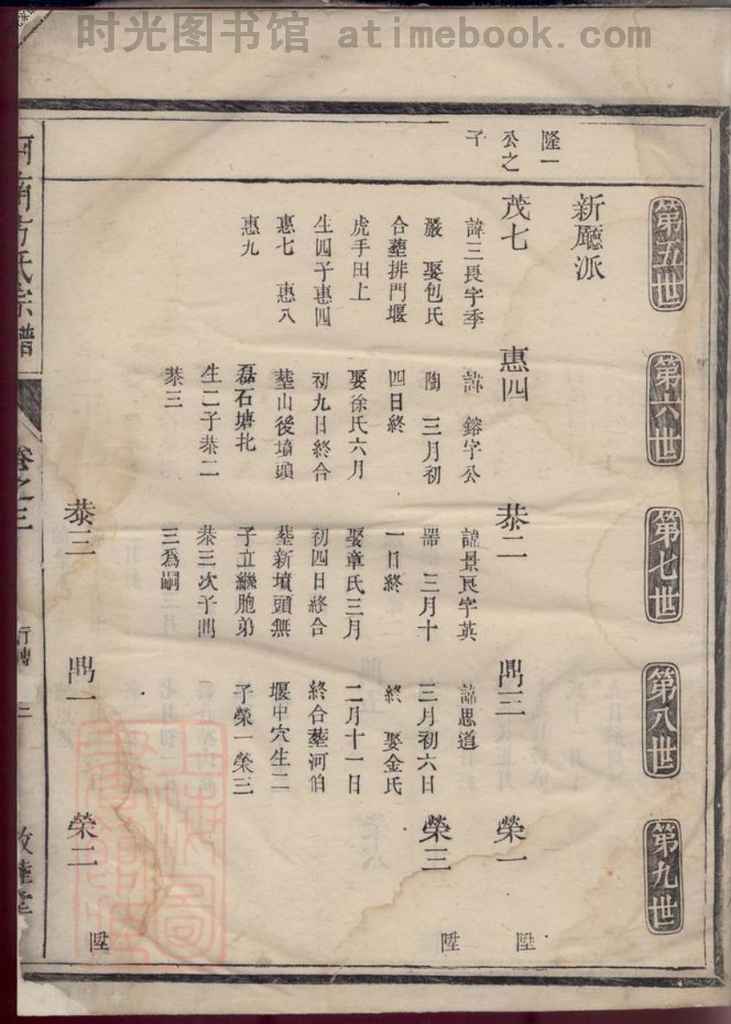 时光图书馆 atimebook.com
第五世
第六世
第七世
第八世
第九世
新廳派
隆一
公之
子
茂七
諱三長字季
嚴 娶包氏
合塟排門堰
虎手田上
生四子惠四
惠七 惠八
惠九
惠四
諱 鎔字公
陶 三月初
四日終
娶徐氏六月
初九日終合
塟山後墳頭
磊石塘北
生二子恭二
恭三
恭二
諱景良字英
三月十
一日終
娶章氏三月
初四日終合
塟新墳頭無
子立繼胞弟
恭三次子鼎
三為嗣
鼎三
諱思道
三月初六日
終 娶金氏
二月十一日
終合塟河伯
堰中穴生二
子榮一榮三
榮一
陞
榮三
陞
恭三
鼎一
榮二
陞
河南方氏宗譜
卷之三
行傳
二
敦睦堂